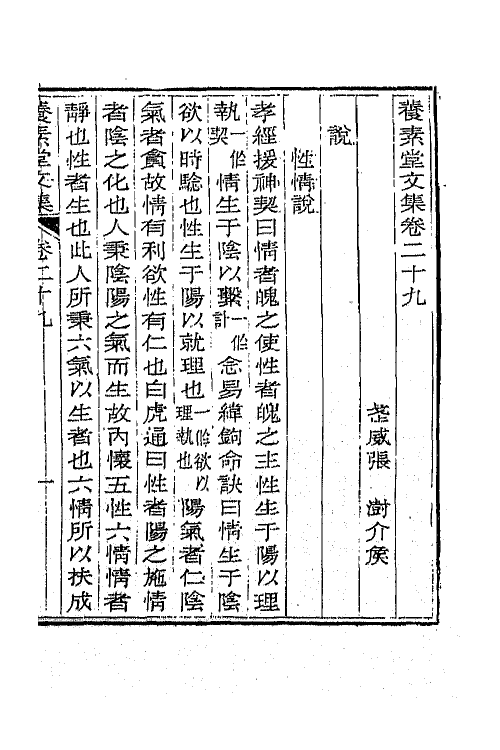 養素堂文集卷二十九
武威張　澍介侯
說
性情說
孝經援神契曰情者魄之使性者魄之主性生于陽以理
執一作契情生于陰以繫一作計念易緯鉤命訣曰情生于陰
欲以時騐也性生于陽以就理也一作欲以理執也陽氣者仁陰
氣者貪故情有利欲性有仁也白虎通曰性者陽之施情
者陰之化也人秉陰陽之氣而生故內懷五性六情情者
靜也性者生也此人所秉六氣以生者也六情所以扶成
養素堂文集　卷二十九　一